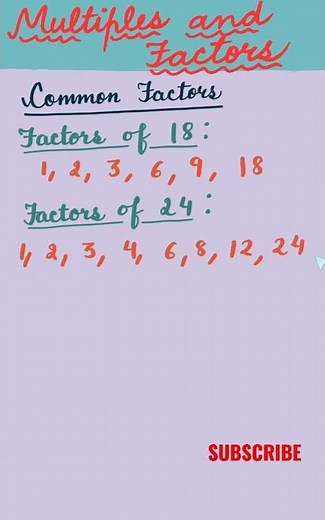 Multiples and
Factors
Common Factors
Factors of 18:
1, 2, 3, 6, 9, 18
Factors of 24:
1, 2, 3, 4, 6, 8, 12, 24
SUBSCRIBE